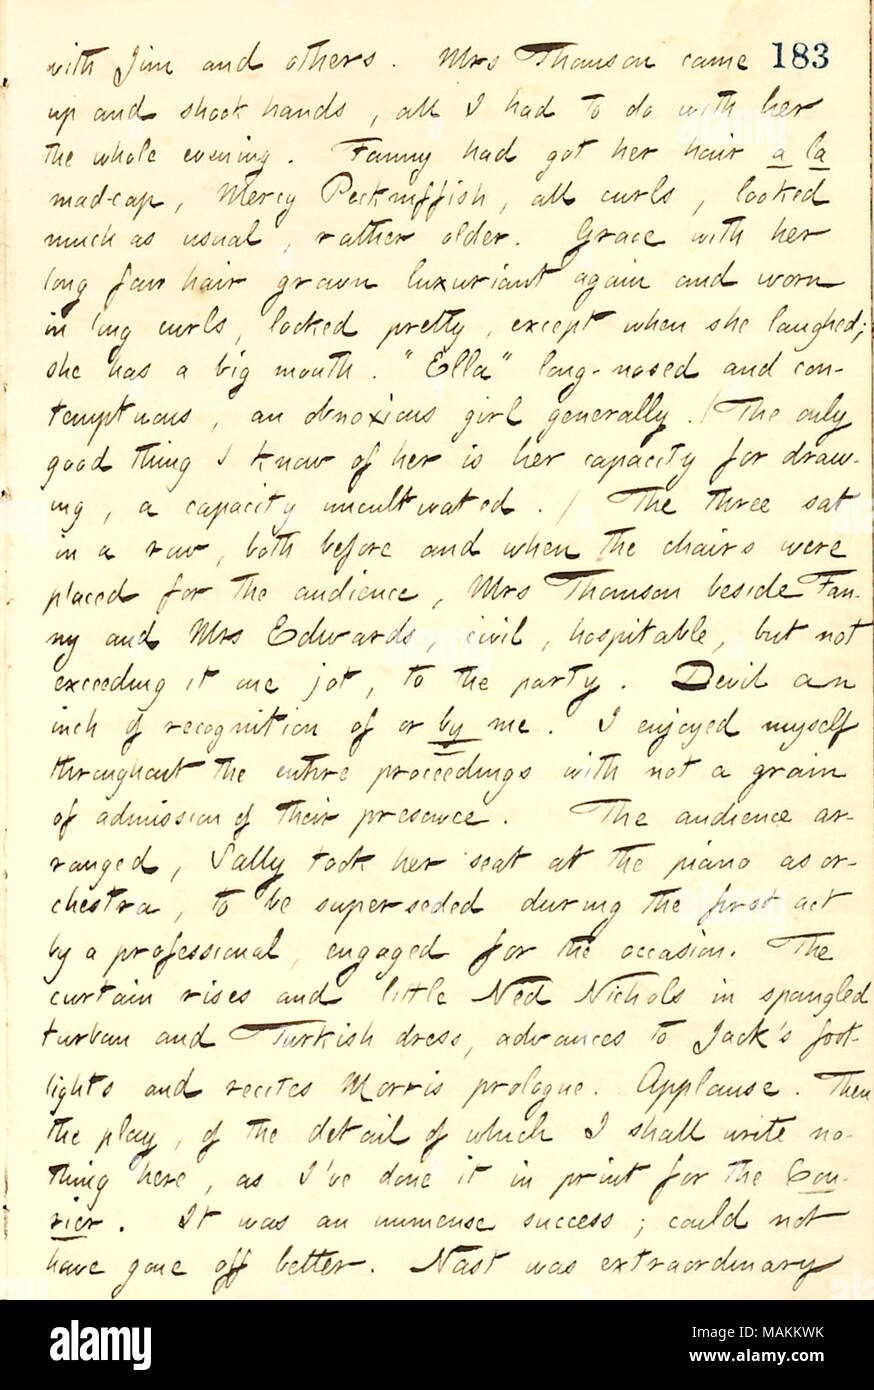 with Jim and others. Mrs Thomson came 183
up and shook hands, all I had to do with her
the whole evening. Fanny had got her hair a la
mad-cap, Mercy Pecksniffish, all curls, looked
much as usual, rather older. Grace with her
long fair hair grown luxuriant again and worn
in long curls, looked pretty, except when she laughed;
she has a big mouth. "Ella" long-nosed and con-
temptuous, an obnoxious girl generally. / The only
good thing I know of her is her capacity for draw-
ing, a capacity uncultivated. / The three sat
in a row, both before and when the chairs were
placed for the audience, Mrs Thomson beside Fan-
ny and Mrs Edwards, civil, hospitable, but not
exceeding it one jot, to the party. Devil an
inch of recognition of or by me. I enjoyed myself
throughout the entire proceedings with not a grain
of admission of their presence. The audience ar-
ranged, Sally took her seat at the piano as or-
chestra, to be superseded during the first act
by a professional, engaged for the occasion. The
curtain rises and little Ned Nichols in spangled
turban and Turkish dress, advances to Jack's foot-
lights and recites Morris prologue. Applause. Then
the play, of the detail of which I shall write no-
thing here, as I've done it in print for the Cou-
rier. It was an immense success; could not
have gone off better. Nast was extraordinary
alamy
Image ID: MAKKWK
www.alamy.com